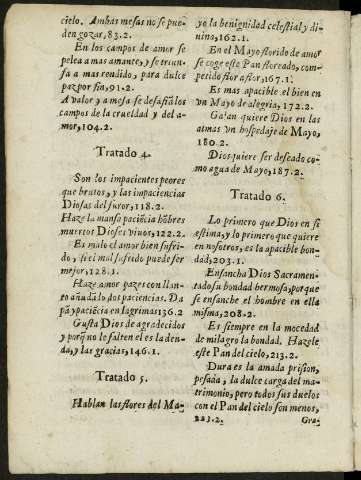 cielo. Ambas mesas no se pue-
den gozar, 83.2.
En los campos de amor se
pelea a mas amante, y se triun-
fa a mas rendido, para dulce
paz por sia, 91.2.
A valor y a mesa se desafia los
campos de la crueldad y del a-
mor, 104.2.
Tratado 4.
Son los impacientes peores
que brutos, y las impaciencias
Diosas del furor, 118.2.
Haze la mansa paciẽcia hõbres
muertos Dioses vivos, 122.2.
Es malo el amor bien sufri-
do, si el mal sufrido puede ser
mejor, 128.1.
Haze amor pazes con llan-
to añadalo dos paciencias. Da
pã y paciẽcia en lagrimas 136.2
Gusta Dios de agradecidos
y porq̃ no le falten el es la deu-
da, y las gracias, 146.1.
Tratado 5.
Hablan las flores del Ma-
yo la benignidad celestial y di-
uina, 162.1.
En el Mayo florido de amor
se coge este Pan floreado, com-
petido flor a flor, 167.1.
Es mas apacible el bien en
vn Mayo de alegria, 172.2.
Galan quiere Dios en las
almas vn hospedaje de Mayo,
180.2.
Dios quiere ser deseado co-
mo agua de Mayo, 187.2.
Tratado 6.
Lo primero que Dios en si
estima, y lo primero que quiere
en nosotros, es la apacible bon-
dad, 203.1.
Ensancha Dios Sacramen-
tado su bondad hermosa, porque
se ensanche el hombre en ella
misma, 208.2.
Es siempre en la mocedad
de milagro la bondad. Hazele
este Pan del cielo, 213.2.
Dura es la amada prision,
pesada, la dulce carga del ma-
trimonio, pero todos sus duelos
con el Pan del cielo son menos,
223.2. Gra-